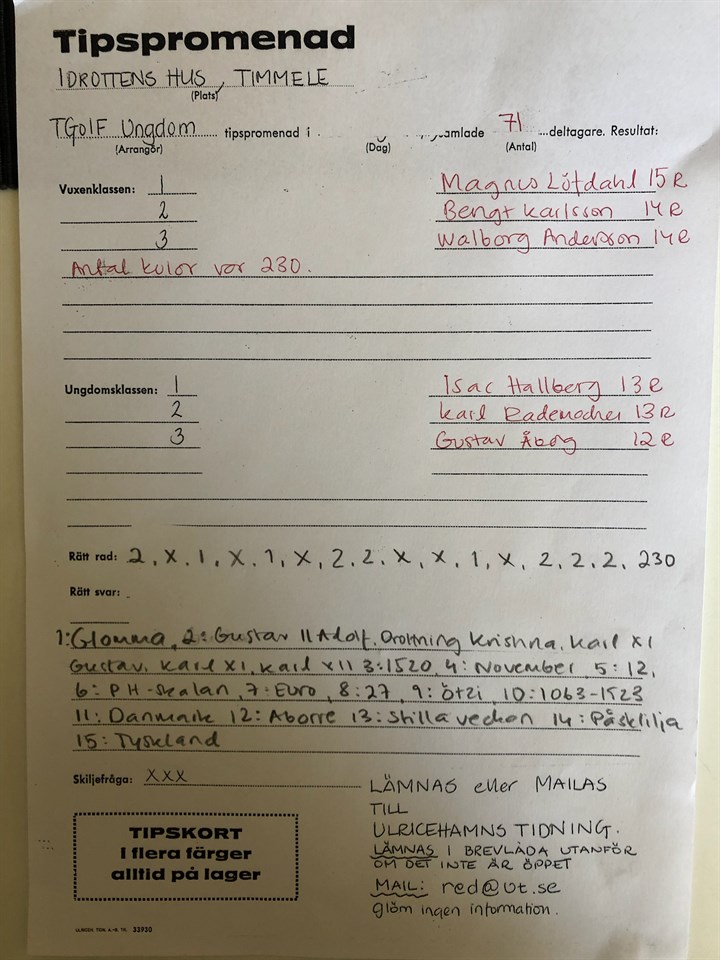 Tipspromenad
IDROTTENS HUS, TIMMELE
(Plats)
TGoIF Ungdom tipspromenad i samlade 71 deltagare. Resultat:
(Arrangör) (Dag) (Antal)
Vuxenklassen: 1 Magnus Löfdahl 15 R
2 Bengt Karlsson 14 R
3 Walborg Andersson 14 R
Antal kulor var 230.
Ungdomsklassen: 1 Isac Hallberg 13 R
2 Karl Rademacher 13 R
3 Gustav Åberg 12 R
Rätt rad: 2, X, 1, X, 1, X, 2, 2, X, X, 1, X, 2, 2, 2, 230
Rätt svar:
1: Glomma, 2: Gustav II Adolf, Drottning Kristina, Karl X
Gustav, Karl XI, Karl XII 3: 1520, 4: November, 5: 12,
6: PH-skalan, 7: Euro, 8: 27, 9: Ötzi, 10: 1063-1523
11: Danmark 12: Aborre 13: Stilla veckan 14: Påsklilja
15: Tyskland
Skiljefråga: XXX
LÄMNAS eller MAILAS
TILL
ULRICEHAMNS TIDNING.
LÄMNAS I BREVLÅDA UTANFÖR
OM DET INTE ÄR ÖPPET
MAIL: red@ut.se
glöm ingen information.
TIPSKORT
I flera färger
alltid på lager
33930